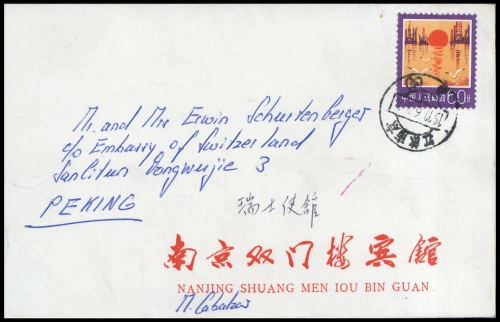 中国人民邮政 60分
Mr. and Mrs Erwin Schurtenberger
c/o Embassy of Switzerland
Sanlitun Dongwujie 3
PEKING
瑞士使館
南京双门楼宾館
NANJING SHUANG MEN IOU BIN GUAN